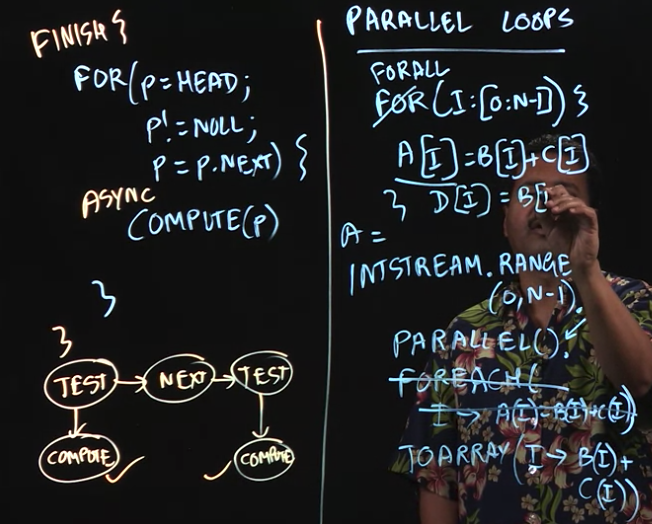 FINISH {
FOR(P=HEAD;
P!=NULL;
P=P.NEXT) {
ASYNC
COMPUTE(P)
}
}
TEST → NEXT → TEST
COMPUTE ✓ ✓ COMPUTE
PARALLEL LOOPS
FORALL
FOR(I:[0:N-1]) {
A[I]=B[I]+C[I]
} D[I]=B[I
A =
INTSTREAM.RANGE
(0,N-1).
PARALLEL().
FOREACH(
I → A(I)=B(I)+C(I))
TOARRAY(I → B(I)+
C(I))